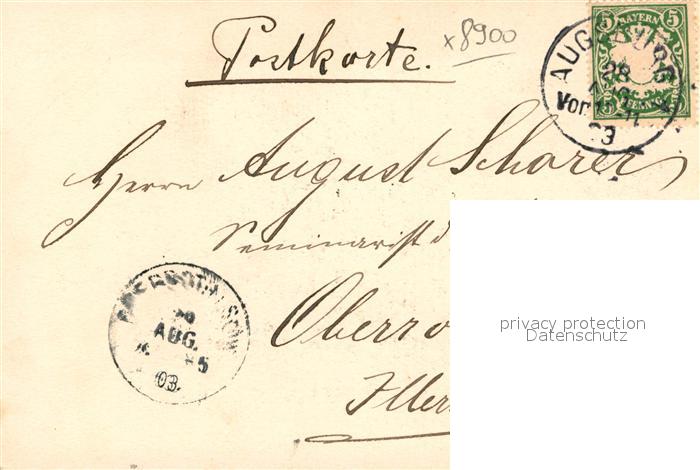 Postkarte.
x8900
5 BAYERN 5
AUGSBURG
28
AUG.
Vor. 
03
Herrn August Schorer
Seminarist d
Oberro
Iller
AUG.
03.
privacy protection
Datenschutz